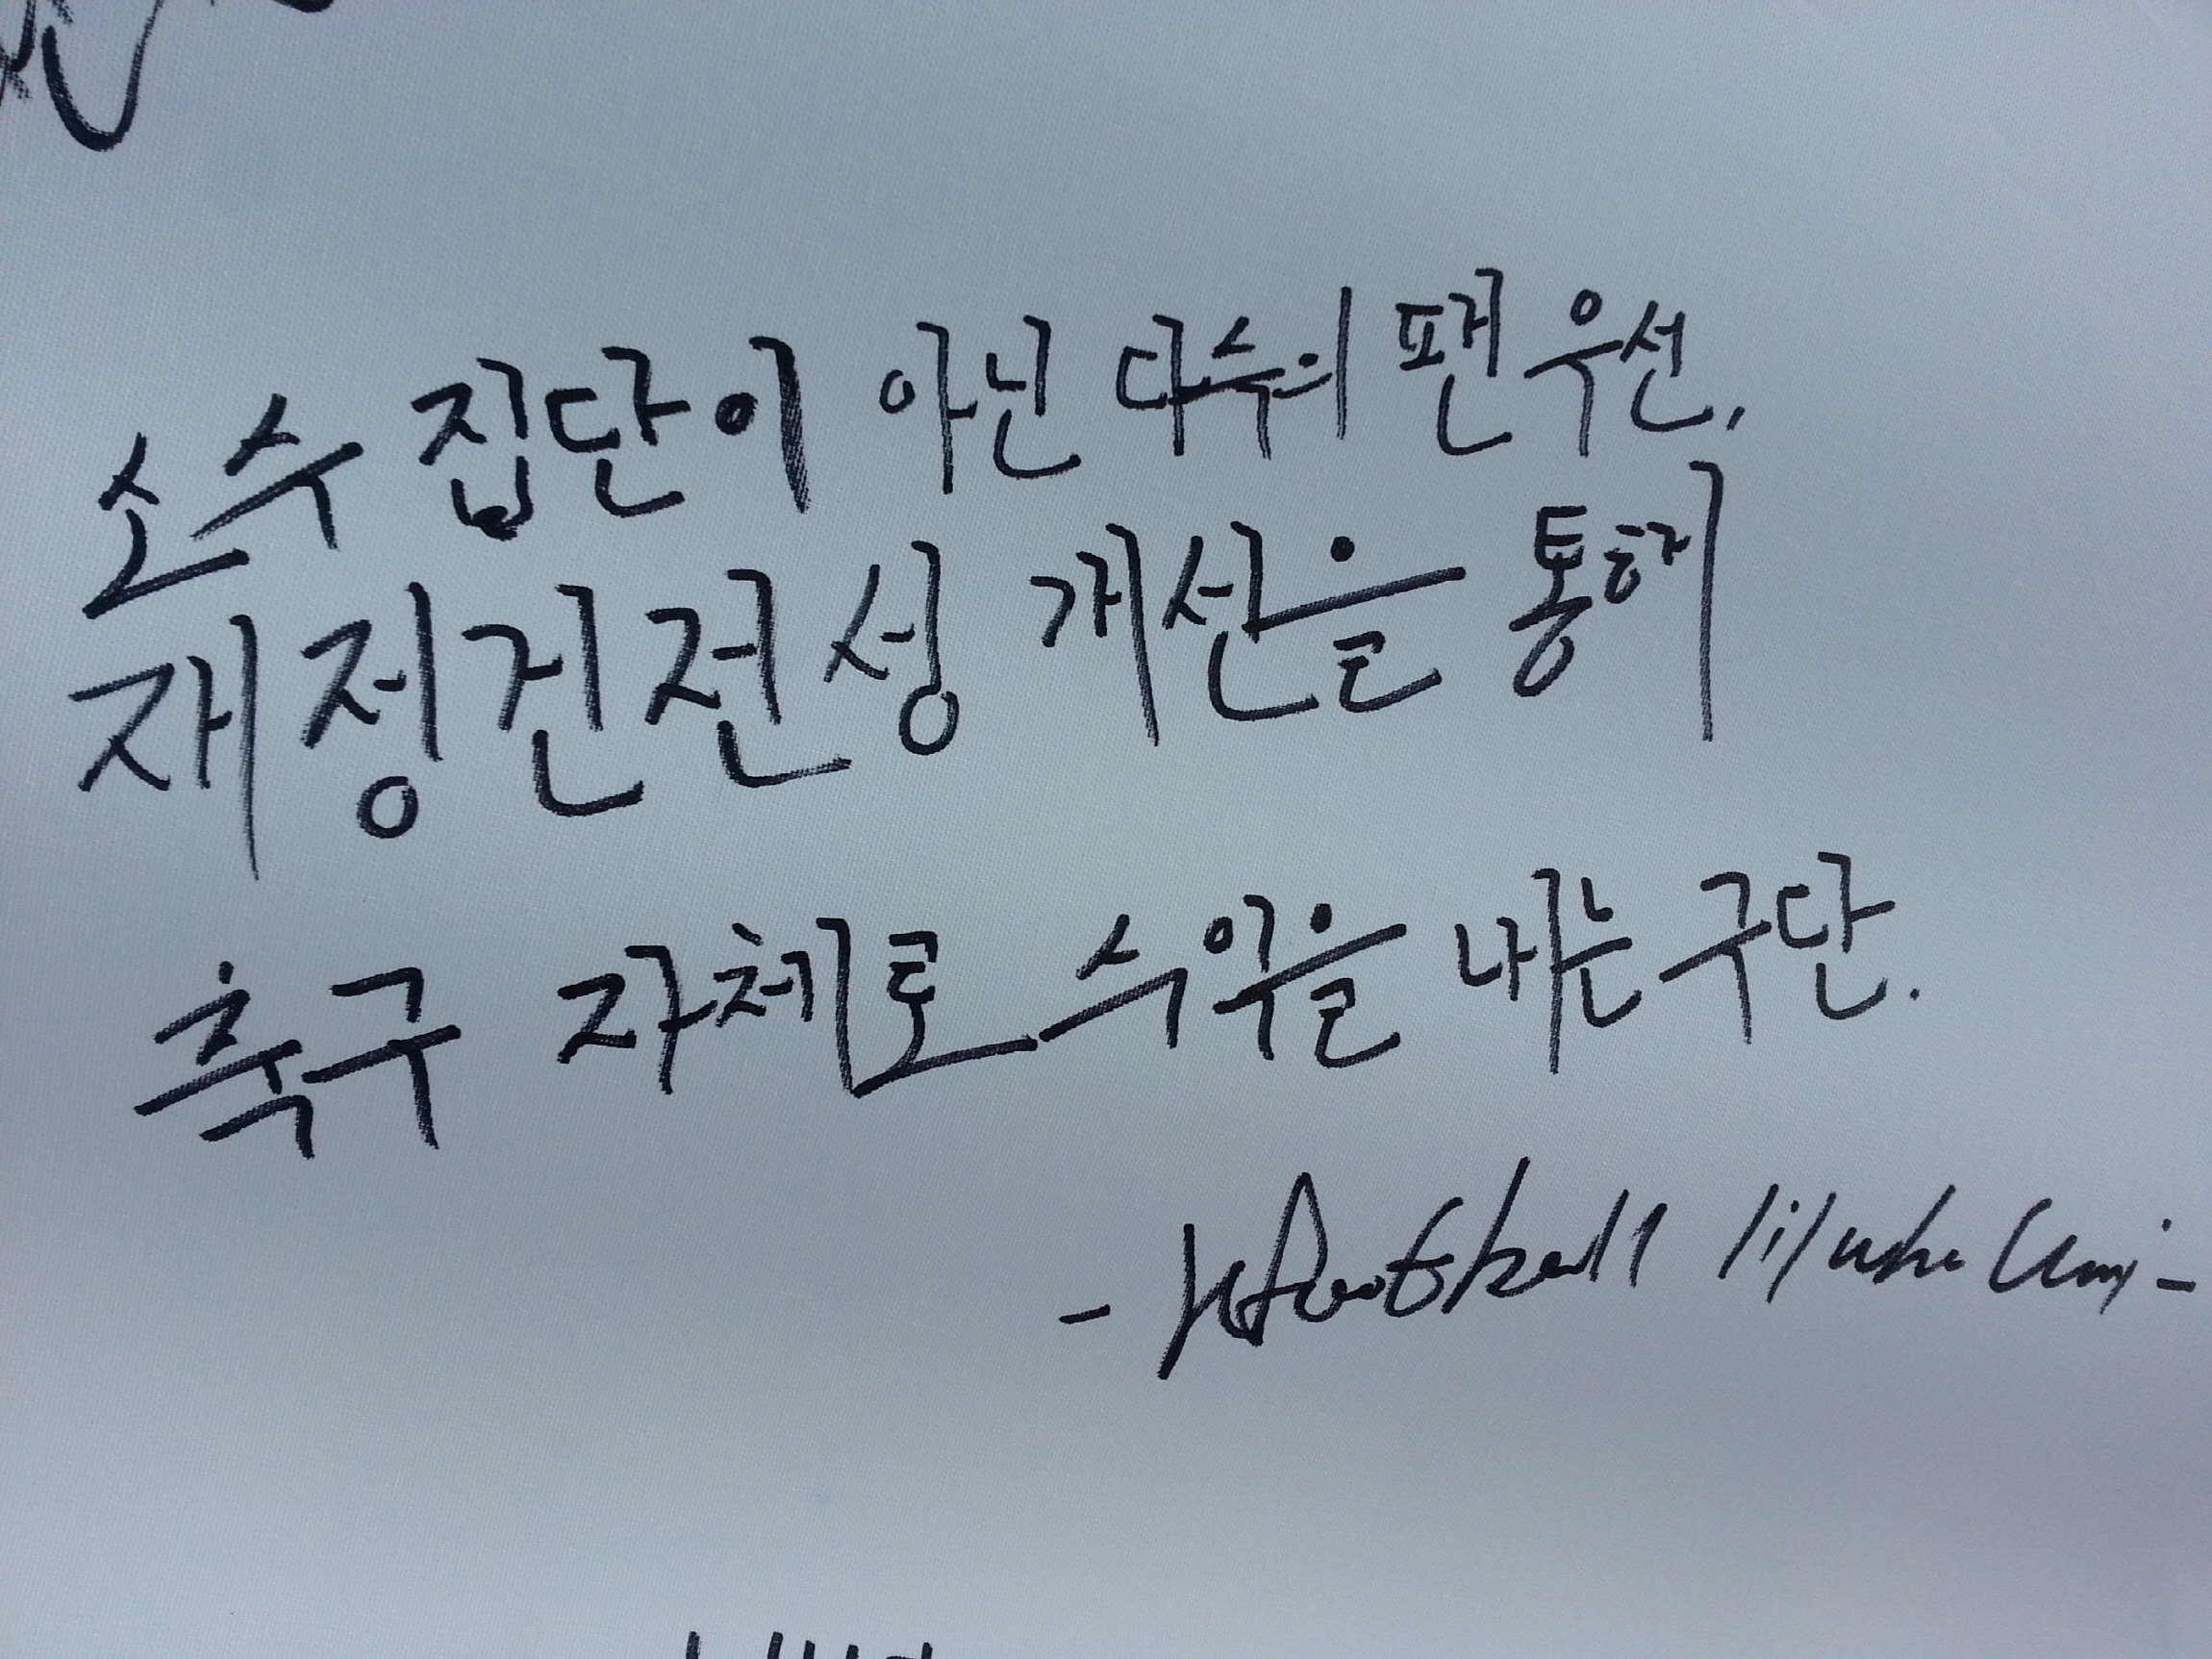 소수 집단이 아닌 다수의 팬 우선,
재정건전성 개선을 통해
축구 자체로 수익을 내는 구단.